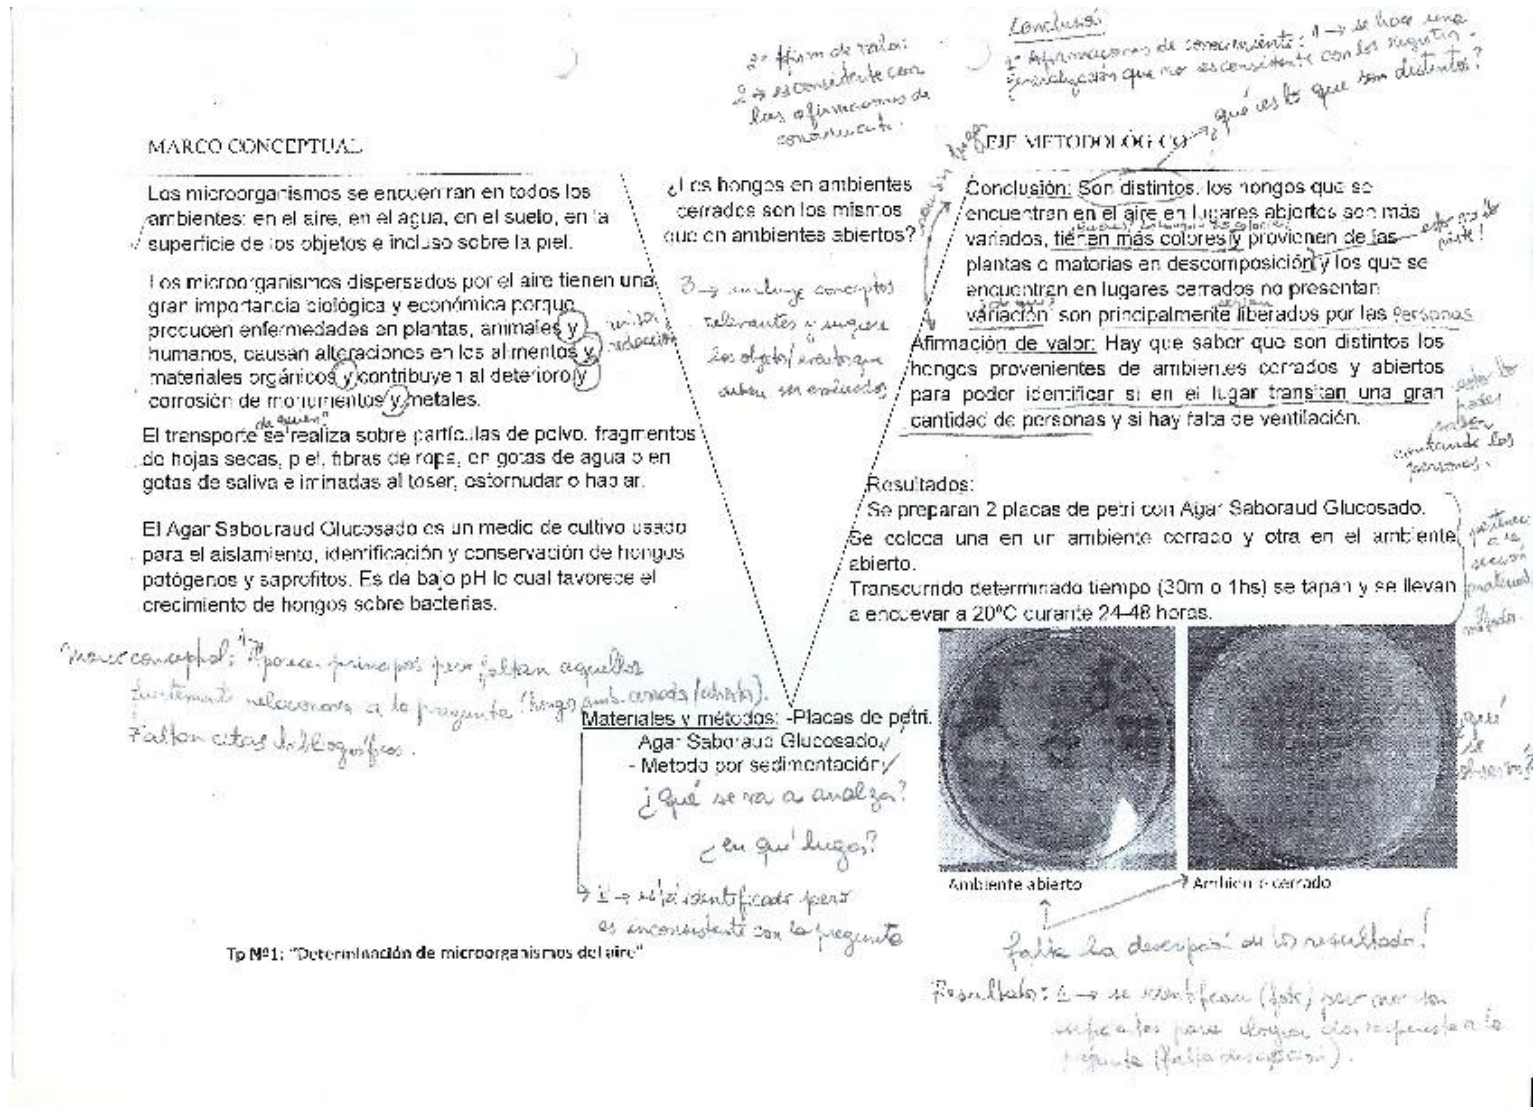 Conclusión
1º Afirmaciones de conocimiento: 1 → se hace una
generalización que no es consistente con los registros.
2º Afirm de valor:
2 → es consistente con
las afirmaciones de
conocimiento.
¿qué es lo que son distintos?
MARCO CONCEPTUAL
Los microorganismos se encuentran en todos los
ambientes: en el aire, en el agua, en el suelo, en la
superficie de los objetos e incluso sobre la piel.
Los microorganismos dispersados por el aire tienen una
gran importancia biológica y económica porque
producen enfermedades en plantas, animales y
humanos, causan alteraciones en los alimentos y
materiales orgánicos y contribuyen al deterioro y
corrosión de monumentos y metales.
revisar
redacción
"de quién"
El transporte se realiza sobre partículas de polvo, fragmentos
de hojas secas, piel, fibras de ropa, en gotas de agua o en
gotas de saliva eliminadas al toser, estornudar o hablar.
El Agar Sabouraud Glucosado es un medio de cultivo usado
para el aislamiento, identificación y conservación de hongos
patógenos y saprofitos. Es de bajo pH lo cual favorece el
crecimiento de hongos sobre bacterias.
Marco conceptual: 1 Aparecen principios pero faltan aquellos
fuertemente relacionados a la pregunta (hongos amb. cerrados/abiertos).
Faltan citas bibliográficas.
¿Los hongos en ambientes
cerrados son los mismos
que en ambientes abiertos?
3 → incluye conceptos
relevantes y sugiere
los objetos/eventos que
deben ser
EJE METODOLÓGICO
Conclusión: Son distintos, los hongos que se
encuentran en el aire en lugares abiertos son más
variados, tienen más colores y provienen de las
plantas o materias en descomposición y los que se
encuentran en lugares cerrados no presentan
variación son principalmente liberados por las personas
¿de qué?
serían
esto no lo
Afirmación de valor: Hay que saber que son distintos los
hongos provenientes de ambientes cerrados y abiertos
para poder identificar si en el lugar transitan una gran
cantidad de personas y si hay falta de ventilación.
esto lo
podés
saber
contando las
personas.
Resultados:
Se preparan 2 placas de petri con Agar Saboraud Glucosado.
Se coloca una en un ambiente cerrado y otra en el ambiente
abierto.
Transcurrido determinado tiempo (30m o 1hs) se tapan y se llevan
a encuevar a 20ºC durante 24-48 horas.
pertenece
a la
sección
materiales
y
métodos.
Materiales y métodos: -Placas de petri.
Agar Saboraud Glucosado
- Metodo por sedimentación
¿Qué se va a analizar?
¿en qué lugar?
1 → está identificado pero
es inconsistente con la pregunta
¿qué
se
observa?
Ambiente abierto
Ambiente cerrado
falta la descripción de los resultados!
Resultados: 1 → se identifican (foto) pero no son
suficientes para lograr dar respuesta a la
pregunta (falta descripción).
Tp Nº1: "Determinación de microorganismos del aire"